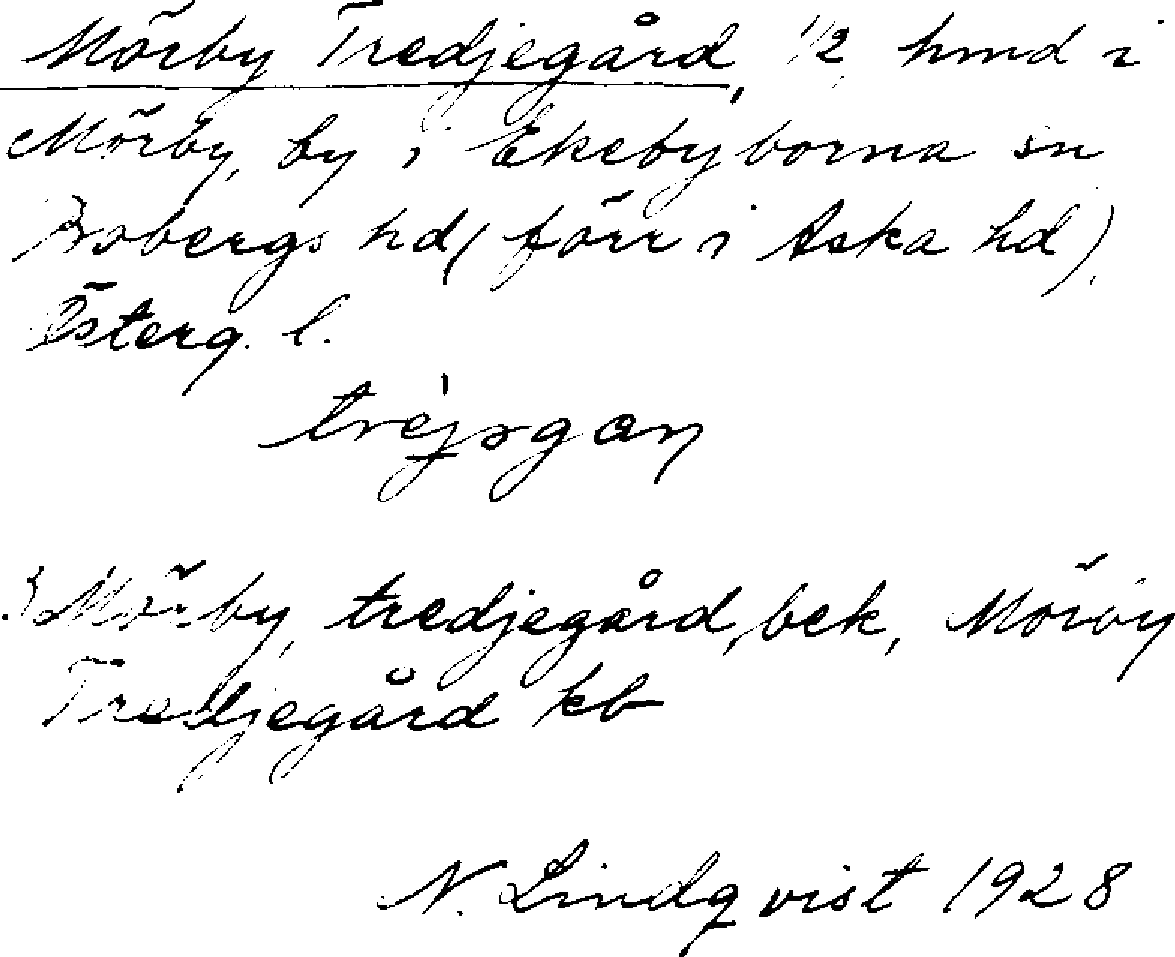 Mörby Tredjegård, 1/2 hmd i
Mörby, by i Ekebyborna sn
Bobergs hd (förr i Aska hd),
Österg. l.
Mörby, tredjegård, bek, Mörby
Tredjegård kb
N. Lindqvist 1928